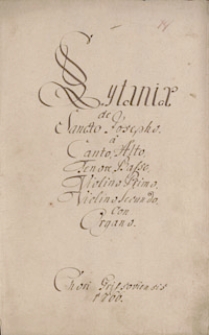 Lytaniæ
de
Sancto Josepho.
à
Canto, Alto.
Tenore, Basso.
Violino Primo.
Violino Secundo.
Con
Organo.
Chori